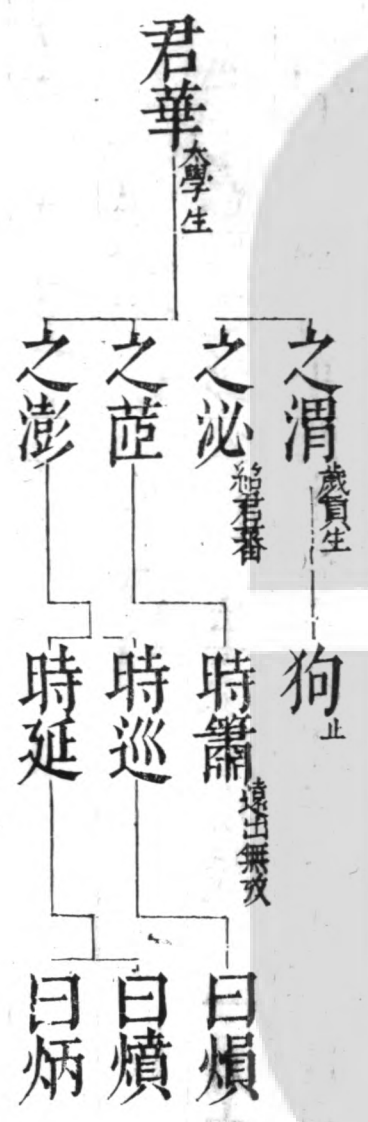 君華
太學生
之渭
歲貢生
之泌
紹君蕃
之茝
之澎
狗
止
時簫
遠出無攷
時巡
時延
曰熉
曰炳